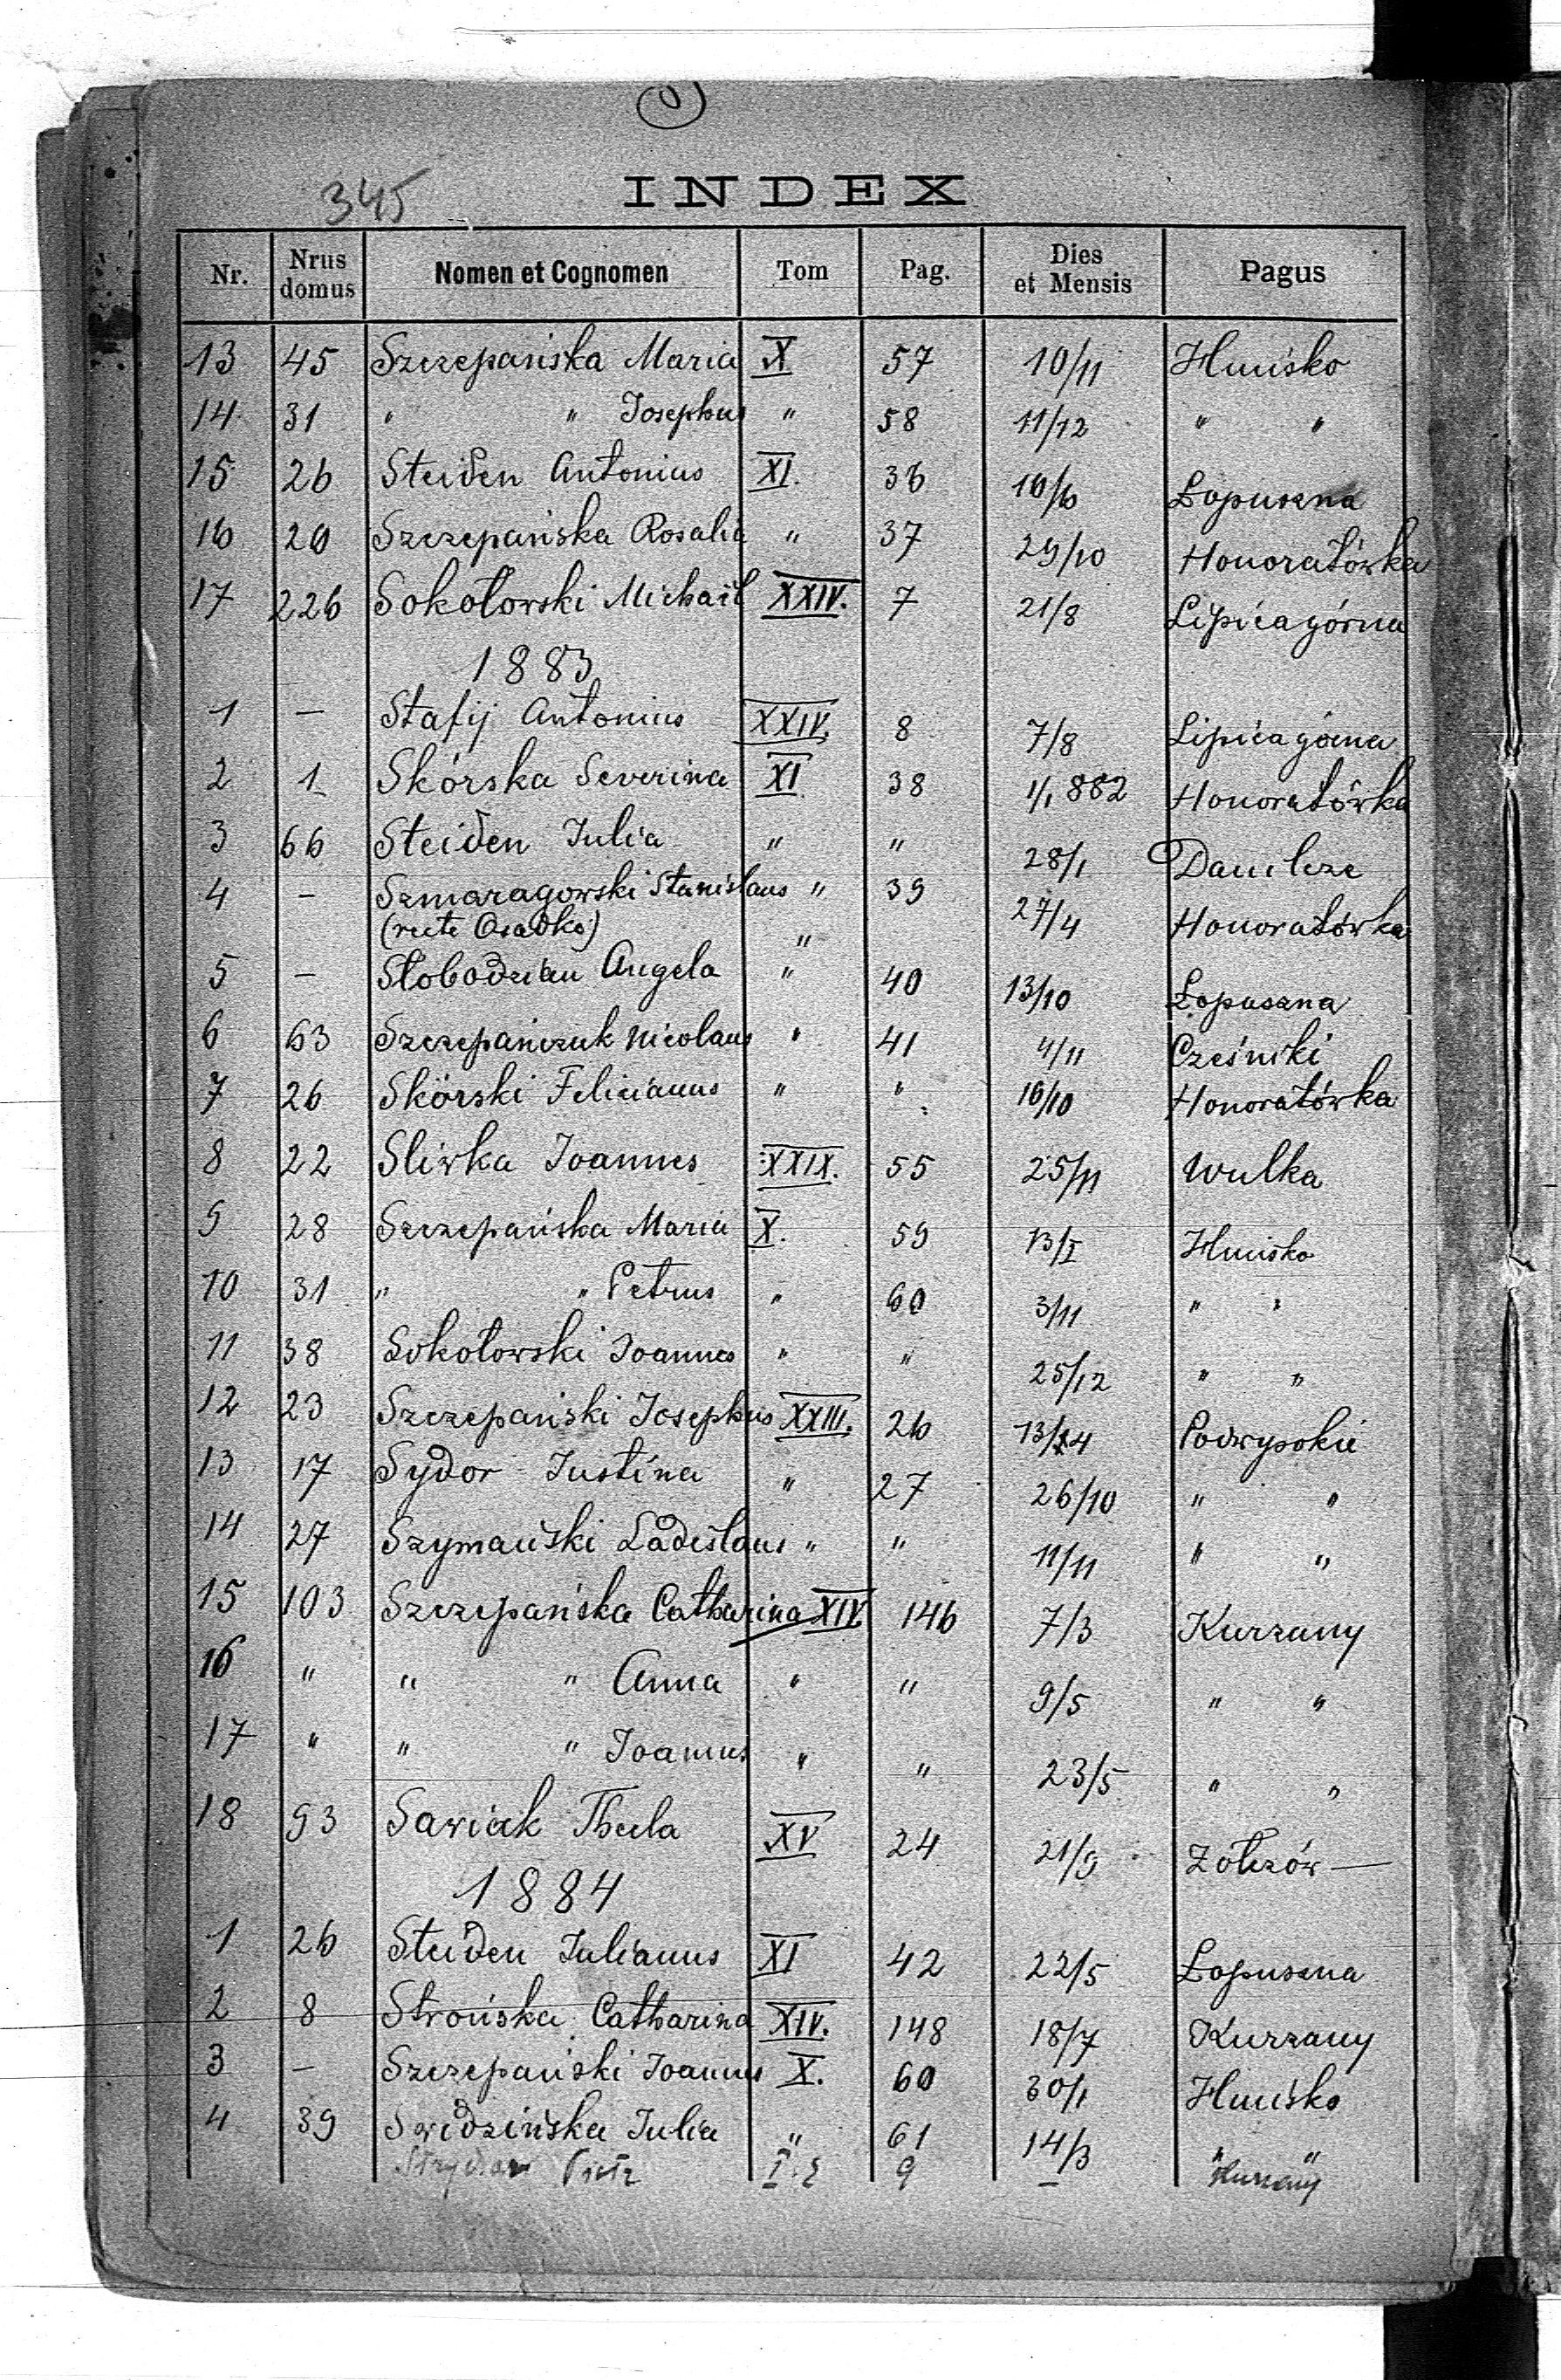 345
INDEX
Nr. Nrus domus Nomen et Cognomen Tom Pag. Dies et Mensis Pagus
13 45 Szczepańska Maria X 57 10/11 Huisko
14 31 " " Josephus " 58 11/12 " "
15 26 Steiden Antonius XI. 36 10/6 Łopuszna
16 20 Szczepańska Rosalia " 37 29/10 Honoratówka
17 226 Sokołowski Michaił XXIV. 7 21/8 Lipica górna
1883
1 — Stafij Antonius XXIV. 8 7/8 Lipica górna
2 1 Skórska Severina XI 38 1/1 882 Honoratówka
3 66 Steiden Julia " " 28/1 Danilcze
4 – Szmaragowski Stanislaus " 39 27/4 Honoratówka
(recte Osadko) "
5 – Słobodzian Angela " 40 13/10 Łopuszna
6 63 Szczepańczuk Nicolaus " 41 4/11 Cześniki
7 26 Skórski Felicianus " " 16/10 Honoratówka
8 22 Sliwka Joannes XXIX. 55 25/11 Wulka
9 28 Szczepańska Maria X. 59 13/I Huisko
10 31 " " Petrus " 60 3/11 " "
11 38 Sokołowski Joannes " " 25/12 " "
12 23 Szczepański Josephus XXIII. 26 13/4 Podwysokie
13 17 Sydor Justina " 27 26/10 " "
14 27 Szymański Ladislaus " " 11/11 " "
15 103 Szczepańska Catharina XIV 146 7/3 Kurzany
16 " " " Anna " " 9/5 " "
17 " " " Joannes " " 23/5 " "
18 93 Sawiak Thecla XV 24 21/9 Zołczów —
1884
1 26 Steiden Julianus XI 42 22/5 Łopuszna
2 8 Strońska Catharina XIV. 148 18/7 Kurzany
3 – Szczepański Joannes X. 60 30/1 Huisko
4 39 Swidzińska Julia " 61 14/3 " "
Piotr 9 – Kurzany